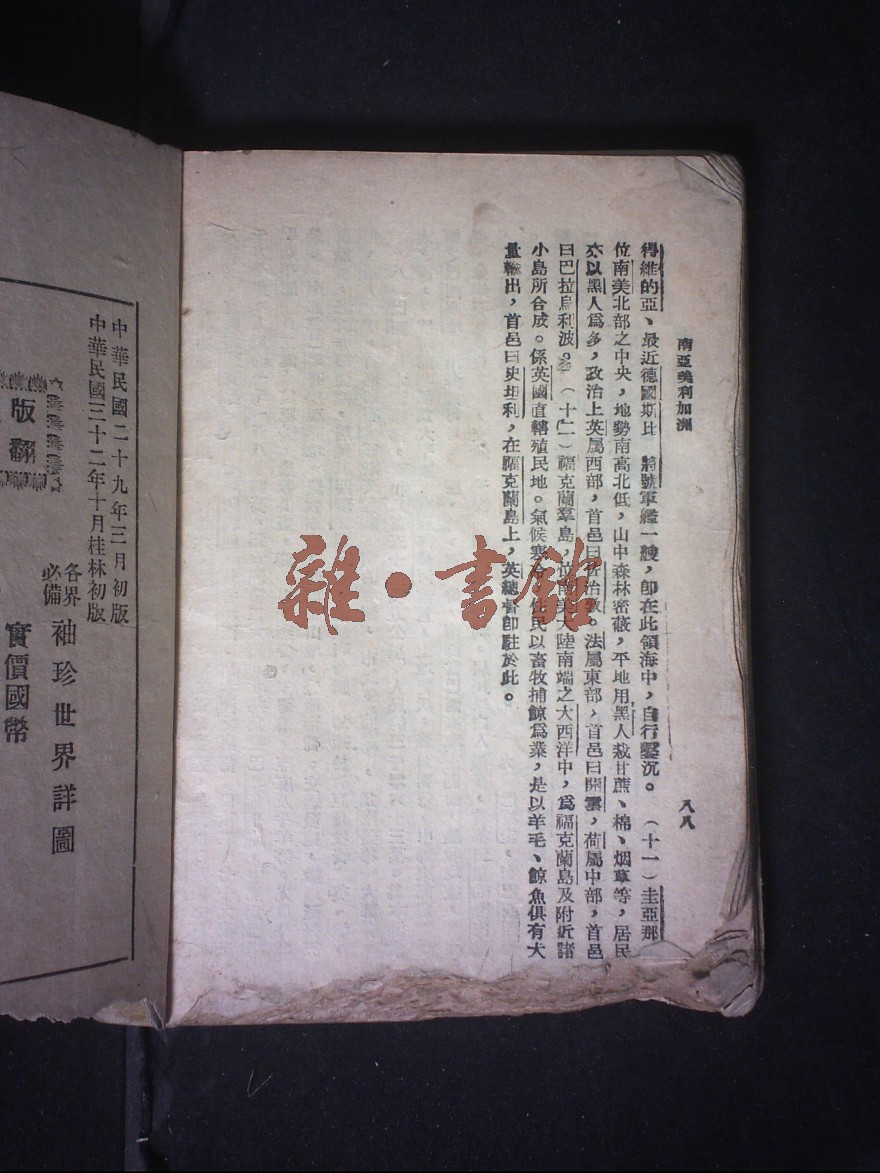 南亞美利加洲
八八
得維的亞、最近德國斯比 將號軍艦一艘,卽在此領海中,自行鑿沉。 (十一)圭亞那
位南美北部之中央,地勢南高北低,山中森林密蔽,平地用黑人栽甘蔗、棉、烟草等,居民
亦以黑人爲多,政治上英屬西部,首邑曰佐治敦。法屬東部,首邑曰開雲,荷屬中部,首邑
曰巴拉馬利波。 (十二)福克蘭羣島,位南美大陸南端之大西洋中,爲福克蘭島及附近諸
小島所合成。係英國直轄殖民地。氣候寒冷,住民以畜牧捕鯨爲業,是以羊毛、鯨魚俱有大
量輸出,首邑曰史坦利,在福克蘭島上,英總督卽駐於此。
雜·書館
中華民國二十九年三月初版
中華民國三十二年十月桂林初版
版翻
各界必備 袖珍世界詳圖
實價國幣